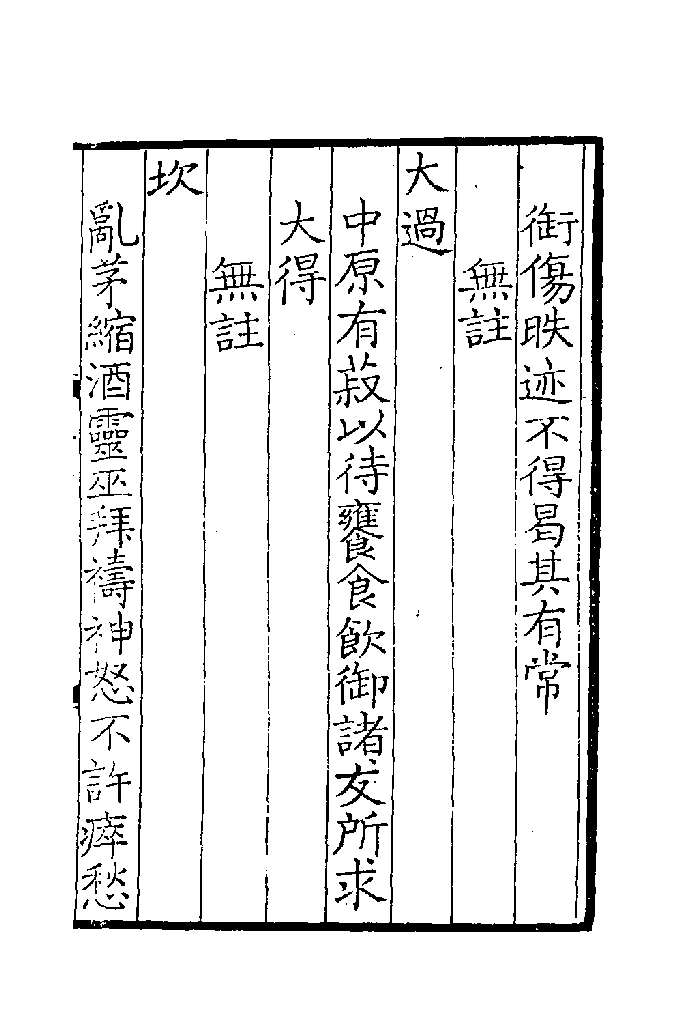 銜傷昳迹不得曷其有常
無註
大過
中原有菽以待饔食飲御諸友所求
大得
無註
坎
亂茅縮酒靈巫拜禱神怒不許瘁愁